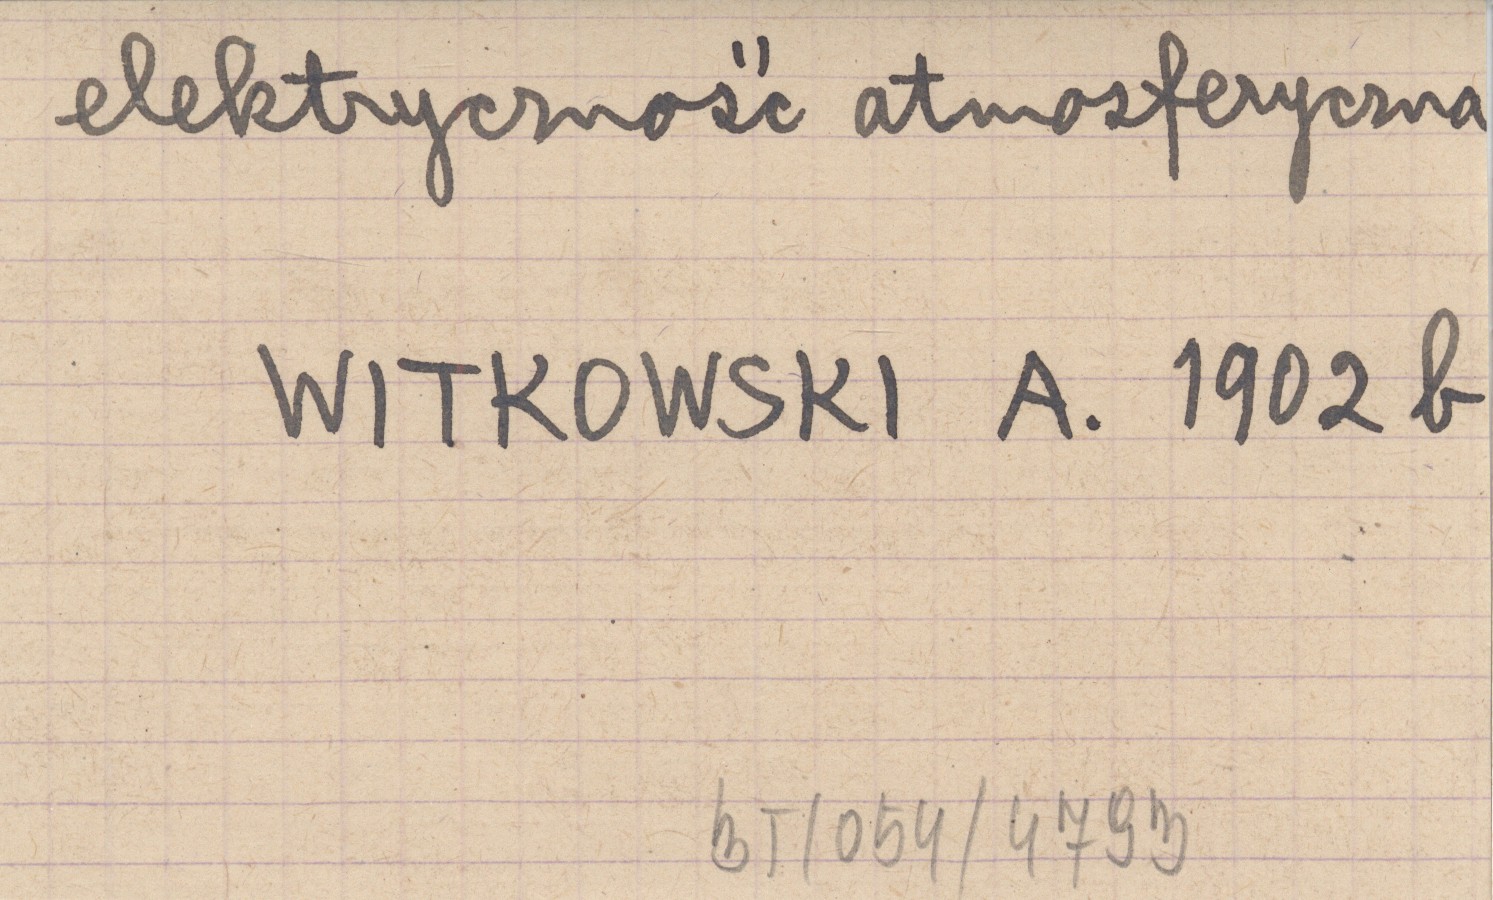 elektryczność atmosferyczna
WITKOWSKI A. 1902 b
BT/054/4793